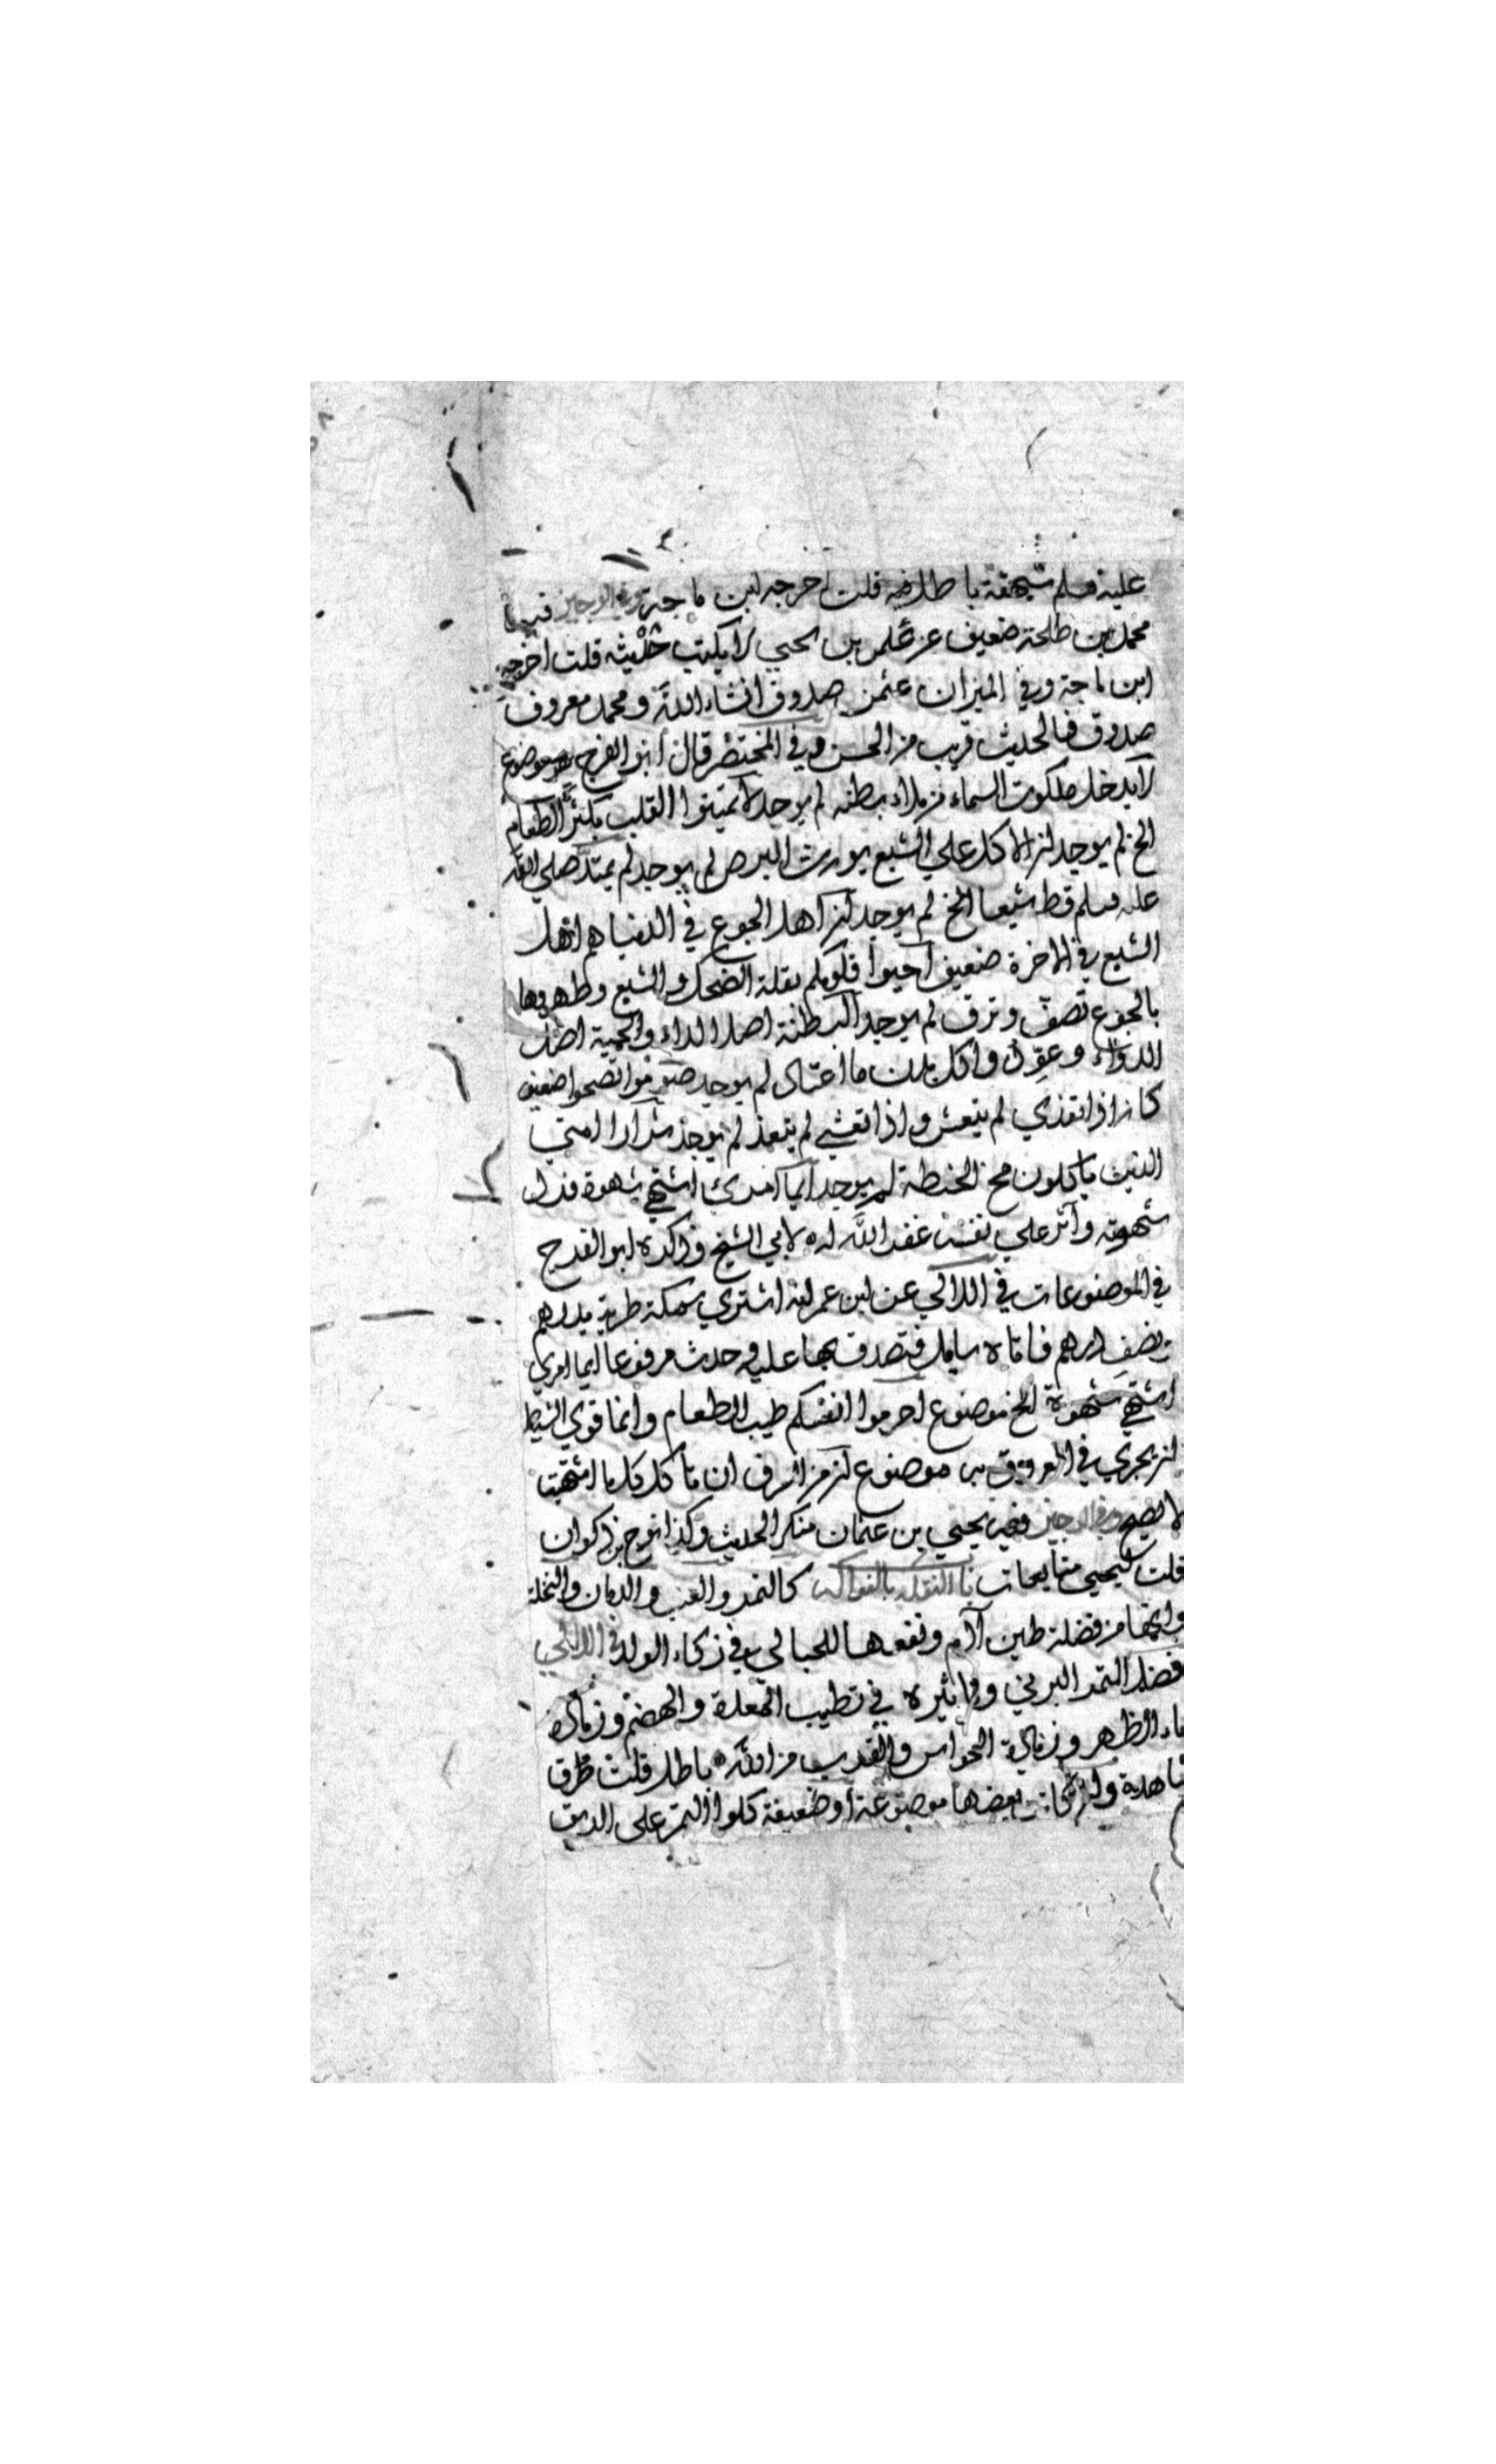 عليه وسلم شهقة باطل فيه قلت اخرجه ابن ماجة وفي الوجيز فيه
محمد بن طلحة ضعيف عن عثمن بن يحيي لا يكتب حديثه قلت اخرجه
ابن ماجة وفي الميزان عثمن صدوق انشاء الله ومحمد معروف
صدوق فالحديث قريب من الحسن وفي المختصر قال ابو الفرج هو موضوع
لا يدخل ملكوت السماء من ملاء بطنه لم يوجد لا تميتوا القلب بكثرة الطعام
الخ لم يوجد ان الاكل علي الشبع يورث البرص لم يوجد لم يمتل صلي الله
عليه وسلم قط شبعا الخ لم يوجد ان اهل الجوع في الدنيا هم اهل
الشبع في الاخرة ضعيف احيوا قلوبكم بقلة الضحك والشبع وطهروها
بالجوع تصف وترق لم يوجد البطنة اصل الداء والحمية اصل
الدواء وعودوا كل بدن ما اعتاد لم يوجد صوموا تصحوا ضعيف
كان اذا تغذي لم يتعش واذا تعشي لم يتغذ لم يوجد شرار امتي
الذين ياكلون مخ الحنطة لم يوجد ايما امرئ اشتهي شهوة فرد
شهوته وآثر علي نفسه غفر الله له لابي الشيخ وذكره ابو الفرج
في الموضوعات في اللالي عن ابن عمر انه اشتري سمكة طرية بدرهم
ونصف درهم فاتاه سايل فتصدق بها عليه وحدث مرفوعا ايما امرئ
اشتهي شهوة الخ موضوع احرموا انفسكم طيب الطعام وانما قوي الشيطان
ان يجري في العروق به موضوع ان من السرف ان تاكل كل ما اشتهيت
لا يصح وفي الوجيز فيه يحيي بن عثمان منكر الحديث وكذا نوح بن ذكوان
قلت ليحيي متابعات باب النقله بالفواكه كالتمر والعنب والرمان والنخلة
وانها من فضلة طين آدم ونفعها للحبالي وفي زكاء الولد في اللالي
فضل التمر البرني وتاثيره في تطييب المعدة والهضم وزيادة
ماء الظهر وزيادة الحواس والقرب من الله باطل قلت طرق
شاهدة وان كانت بعضها موضوعة او ضعيفة كلوا التمر علي الريق